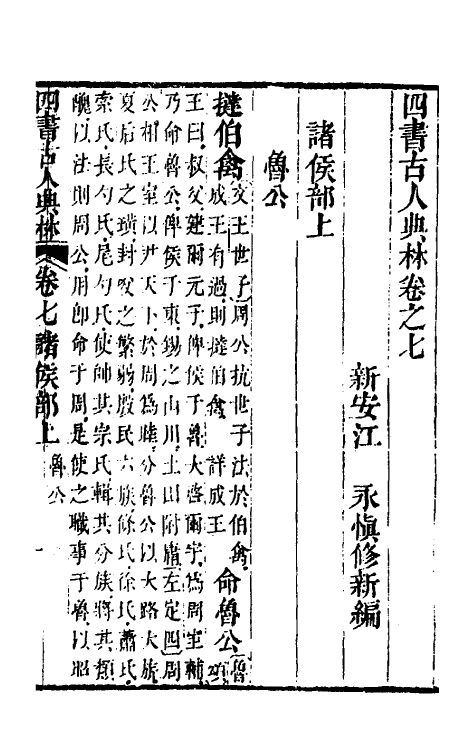 四書古人典林卷之七
新安江 永慎修新編
諸侯部上
魯公
撻伯禽文王世子周公抗世子法於伯禽
成王有過則撻伯禽 詳成王
命魯公魯頌
王曰叔父建爾元子俾侯于魯大啓爾宇爲周室輔
乃命魯公俾侯于東錫之山川土田附庸左定四周
公相王室以尹天下於周爲睦分魯公以大路大旂
夏后氏之璜封父之繁弱殷民六族條氏徐氏蕭氏
索氏長勺氏尾勺氏使帥其宗氏輯其分族將其類
醜以法則周公用卽命于周是使之職事于魯以昭
四書古人典林 卷七諸侯部上 魯公 一